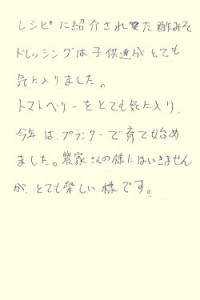 レシピに紹介されて貰た酢みそ
ドレッシングは子供達がとても
気に入りました。
トマトベリーをとても気に入り、
今年は、プランターで育て始め
ました。農家さんの様にはいきません
が、とても楽しい様です。